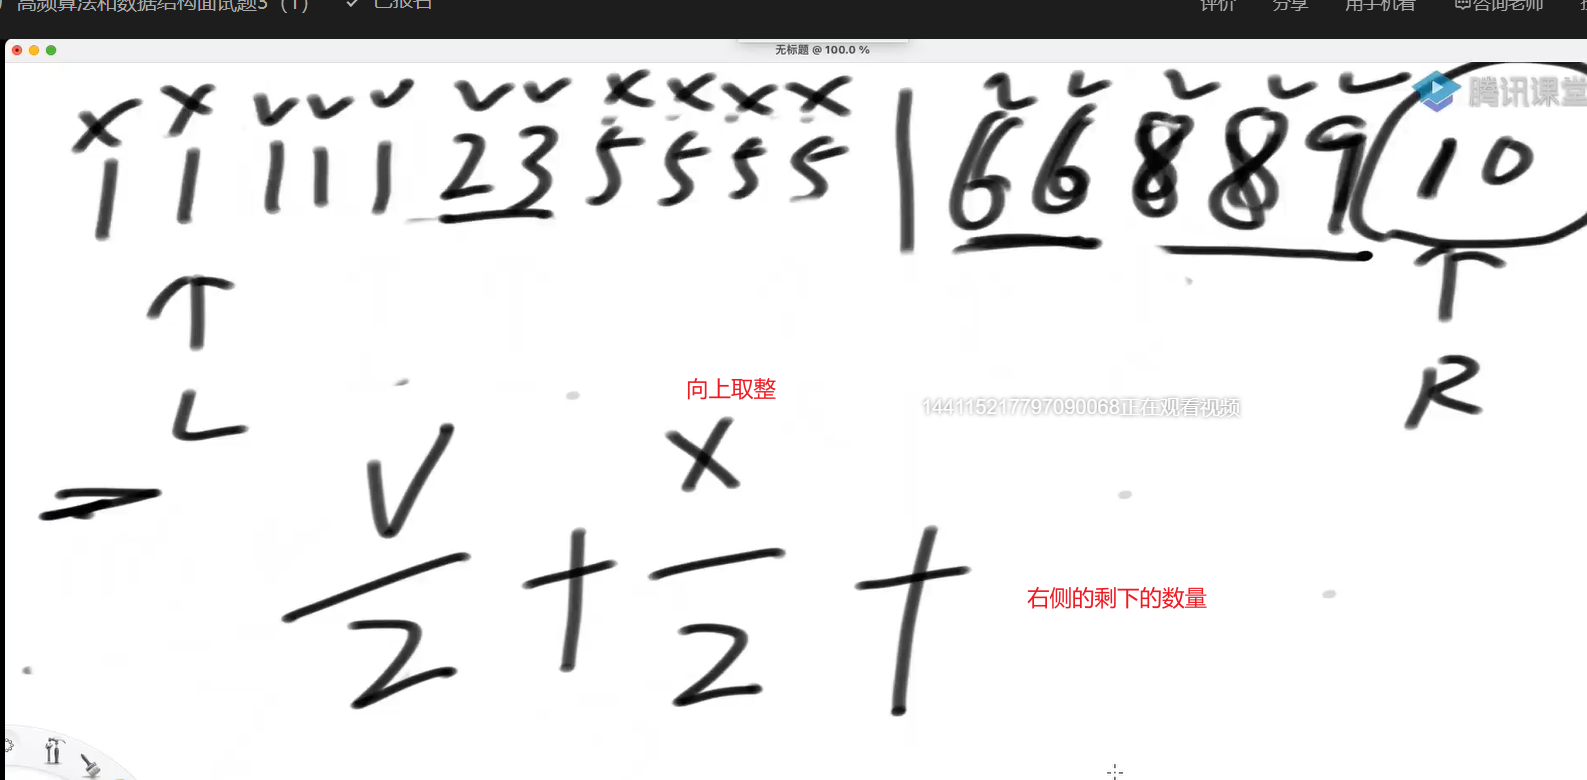 高频算法和数据结构面试题3（1） 已报名 评价 分享 用手机看 咨询老师
无标题 @ 100.0 %
腾讯课堂
X X V V V V V X X X X V V V V V
1 1 1 1 1 2 3 5 5 5 5 | 6 6 8 8 9 10
L R
向上取整
144115217797090068正在观看视频
V X
2 + 2 +
右侧的剩下的数量